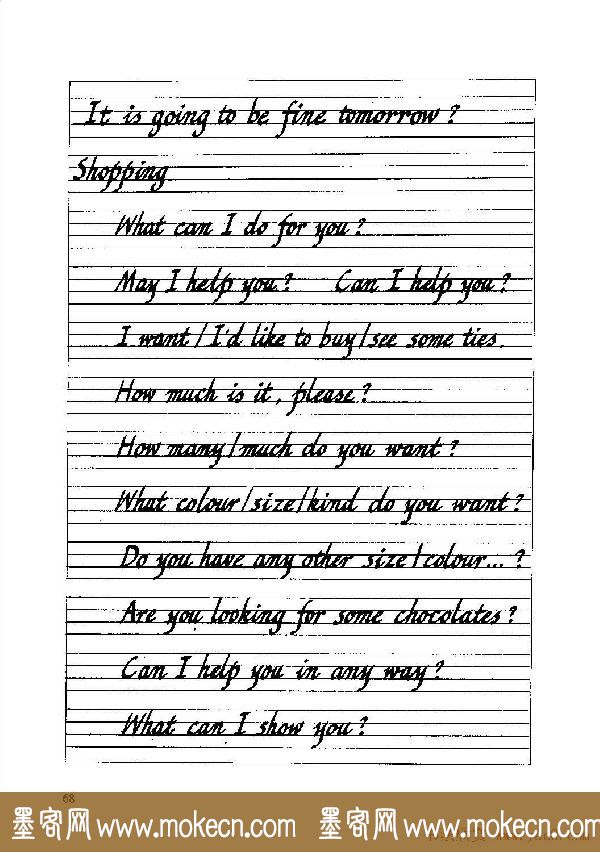 It is going to be fine tomorrow?
Shopping
What can I do for you?
May I help you? Can I help you?
I want/I'd like to buy/see some ties.
How much is it, please?
How many/much do you want?
What colour/size/kind do you want?
Do you have any other size/colour...?
Are you looking for some chocolates?
Can I help you in any way?
What can I show you?
68
墨客网 www.mokecn.com 墨客网 www.mokecn.com